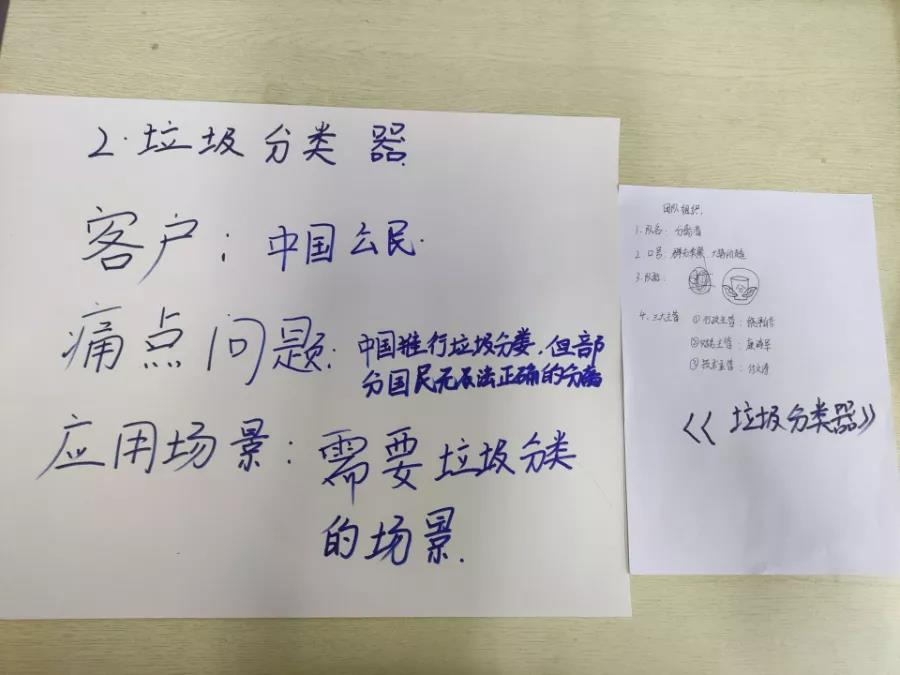 2.垃圾分类器
客户:中国公民.
痛点问题:中国推行垃圾分类,但部
分国民无法正确的分类
应用场景:需要垃圾分类
的场景.
团队组织.
1.队名:
2.口号:
3.队徽:
4.三大主管 ①行政主管:
②主管:
③技术主管:
《垃圾分类器》